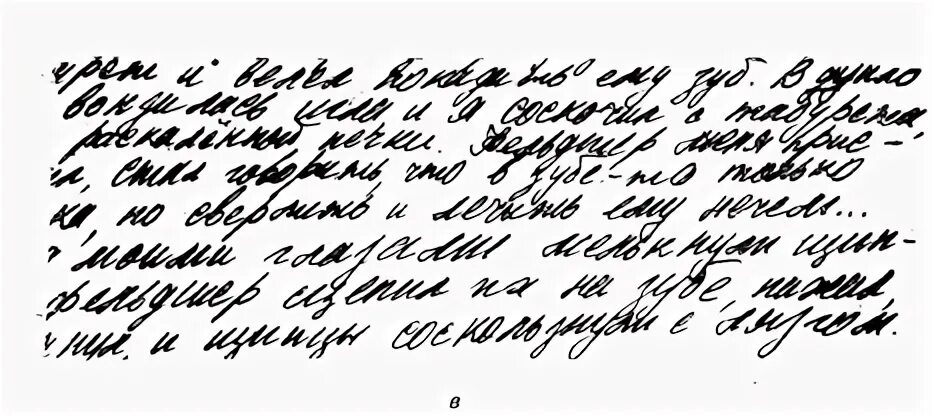 и велел показать ему зуб. В дупло
вонзилась игла и я соскочил с табурета,
раскалённой печки. Фельдшер меня прис-
л, стал говорить, что в зубе-то только
ка, но сверлить и лечить ему нечем...
моими глазами мелькнули щип-
фельдшер нацепил их на зубе, нажал,
нул. и щипцы соскользнули с лязгом.
в